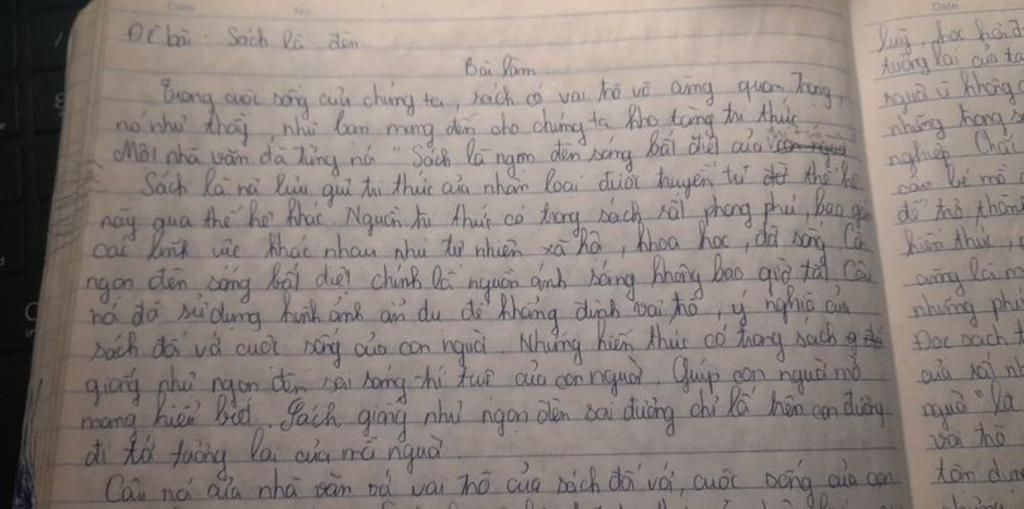 Đề bài: Sách là đèn
Bài làm
Trong cuộc sống của chúng ta, sách có vai trò vô cùng quan trọng,
nó như thầy, như bạn mang đến cho chúng ta kho tàng tri thức
Một nhà văn đã từng nó "Sách là ngọn đèn sáng bất diệt của
Sách là nơi lưu giữ tri thức của nhân loại được truyền từ thế hệ
này qua thế hệ khác. Nguồn tri thức có trong sách rất phong phú, bao gồm
các lĩnh vực khác nhau như tự nhiên xã hội, khoa học, đời sống Còn
ngọn đèn sáng bất diệt chính là nguồn ánh sáng không bao giờ tắt Câu
nói đã sử dụng hình ảnh ẩn dụ để khẳng định vai trò, ý nghĩa của
sách đối với cuộc sống của con người. Những kiến thức có trong sách
giống như ngọn đèn soi sáng trí tuệ của con người. Giúp con người mở
mang hiểu biết. Sách giống như ngọn đèn soi đường chỉ lối trên con đường
đi tới tương lai của mỗi người
Câu nói của nhà văn về vai trò của sách đối với, cuộc sống của con
luỹ, học hỏi
tương lai của ta
người vì không
những trang
nghiệp Chai
cậu bé mồ
để trở thành
kiến thức,
cũng là
những
Đọc sách
của
người "là
vai trò